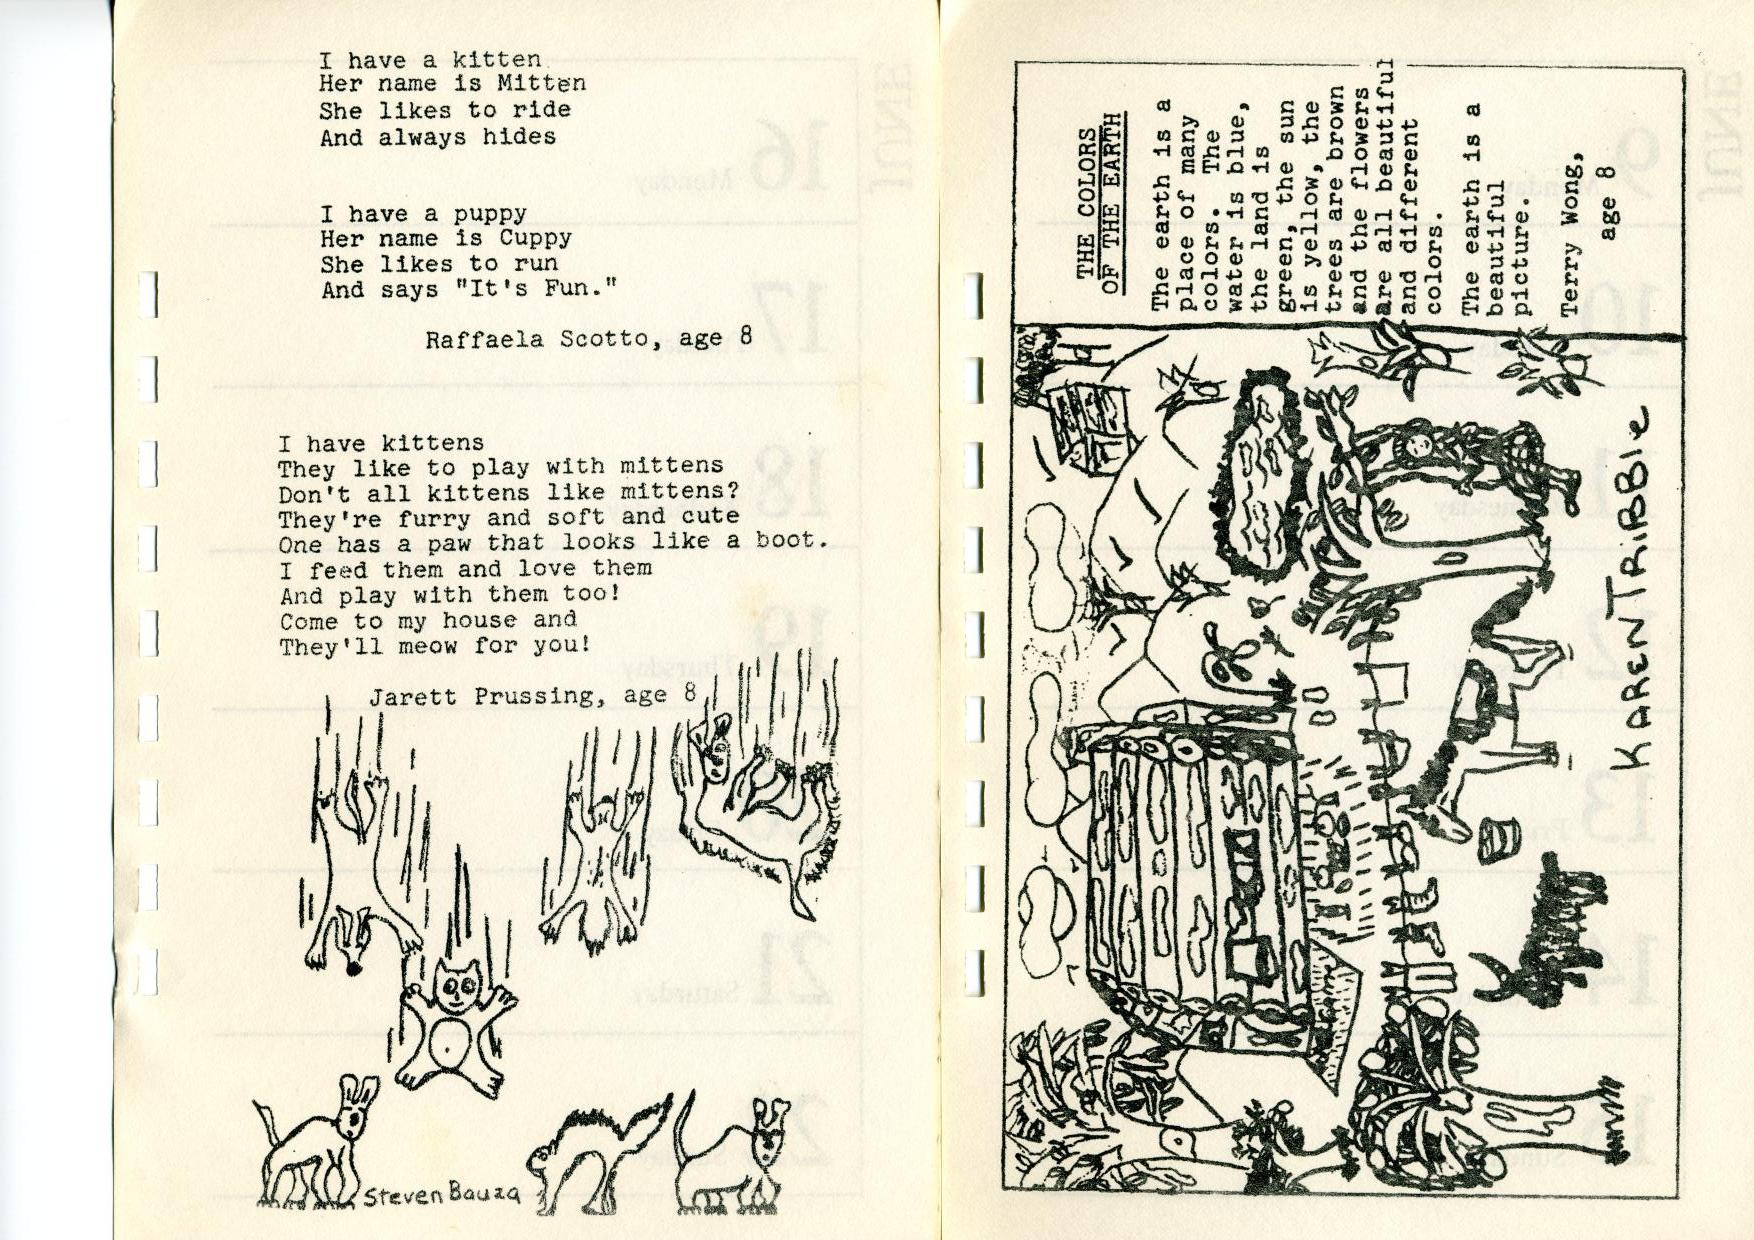 I have a kitten
Her name is Mitten
She likes to ride
And always hides
I have a puppy
Her name is Cuppy
She likes to run
And says "It's Fun."
Raffaela Scotto, age 8
I have kittens
They like to play with mittens
Don't all kittens like mittens?
They're furry and soft and cute
One has a paw that looks like a boot.
I feed them and love them
And play with them too!
Come to my house and
They'll meow for you!
Jarett Prussing, age 8
Steven Bauza
THE COLORS
OF THE EARTH
The earth is a
place of many
colors. The
water is blue,
the land is
green, the sun
is yellow, the
trees are brown
and the flowers
are all beautiful
and different
colors.
The earth is a
beautiful
picture.
Terry Wong,
age 8
KAREN TRIBBIE
JUNE
16
Monday
17
18
19
Thursday
21
Saturday
JUNE
9
10
12
13